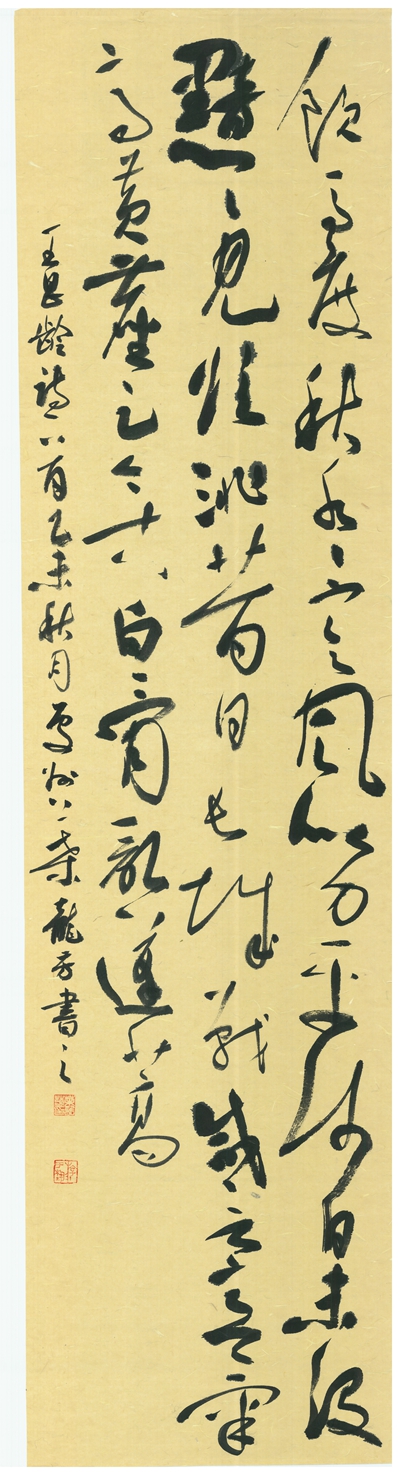 飲馬度秋水々寒風似刀平沙日未没
黯々見臨洮昔日長城戰咸言意氣
高黄塵足今古白骨亂蓬蒿
王昌齡詩一首乙未秋月 龍 書之